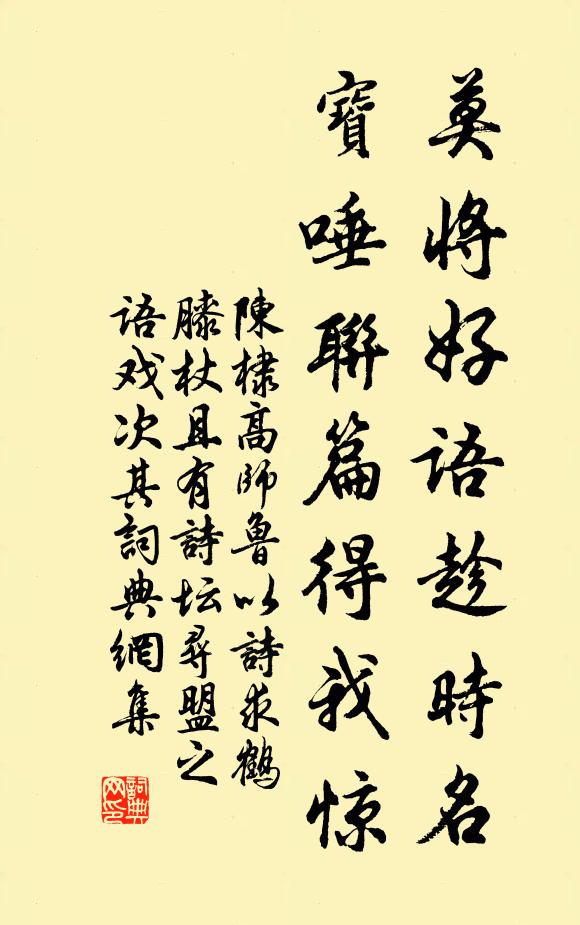 莫將好語趁時名
寶唾聯篇得我惊
陳棣高師魯以詩求鶴
膝杖且有詩坛尋盟之
语戏次其詞典網集
詞典网印